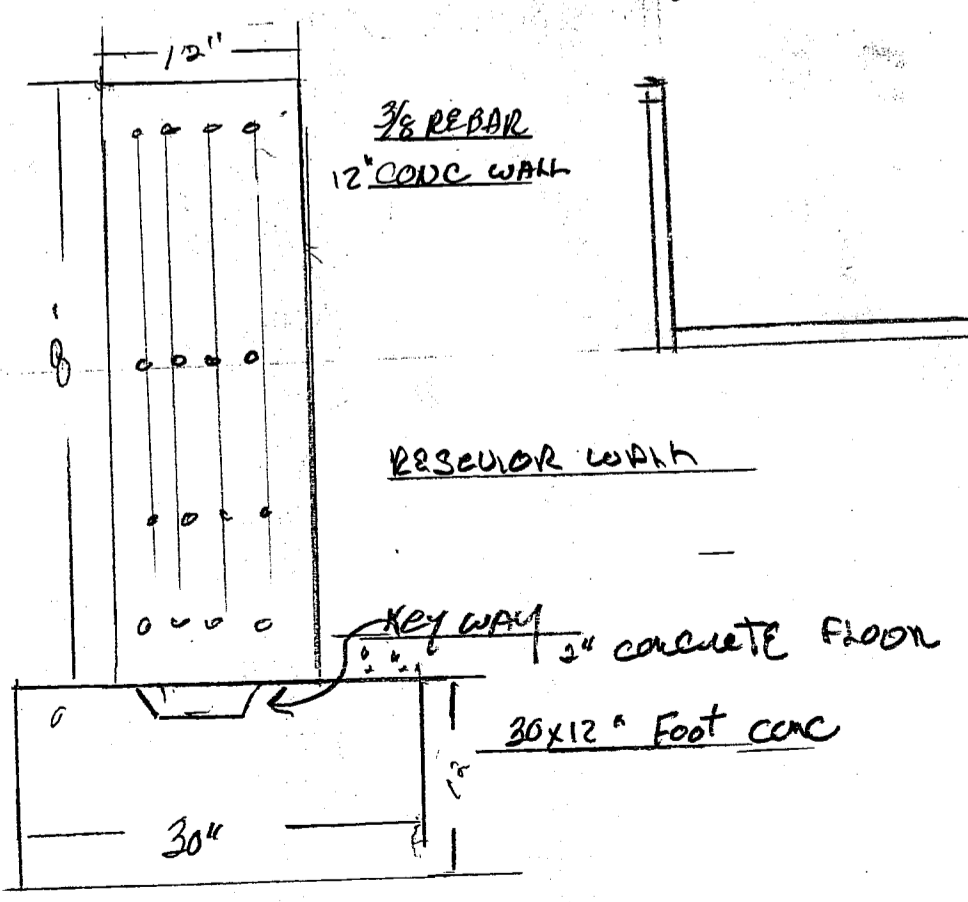 12"
3/8 REBAR
12" CONC WALL
8'
RESEVIOR WALL
KEY WAY
2" CONCRETE FLOOR
30x12" Foot CONC
12
30"